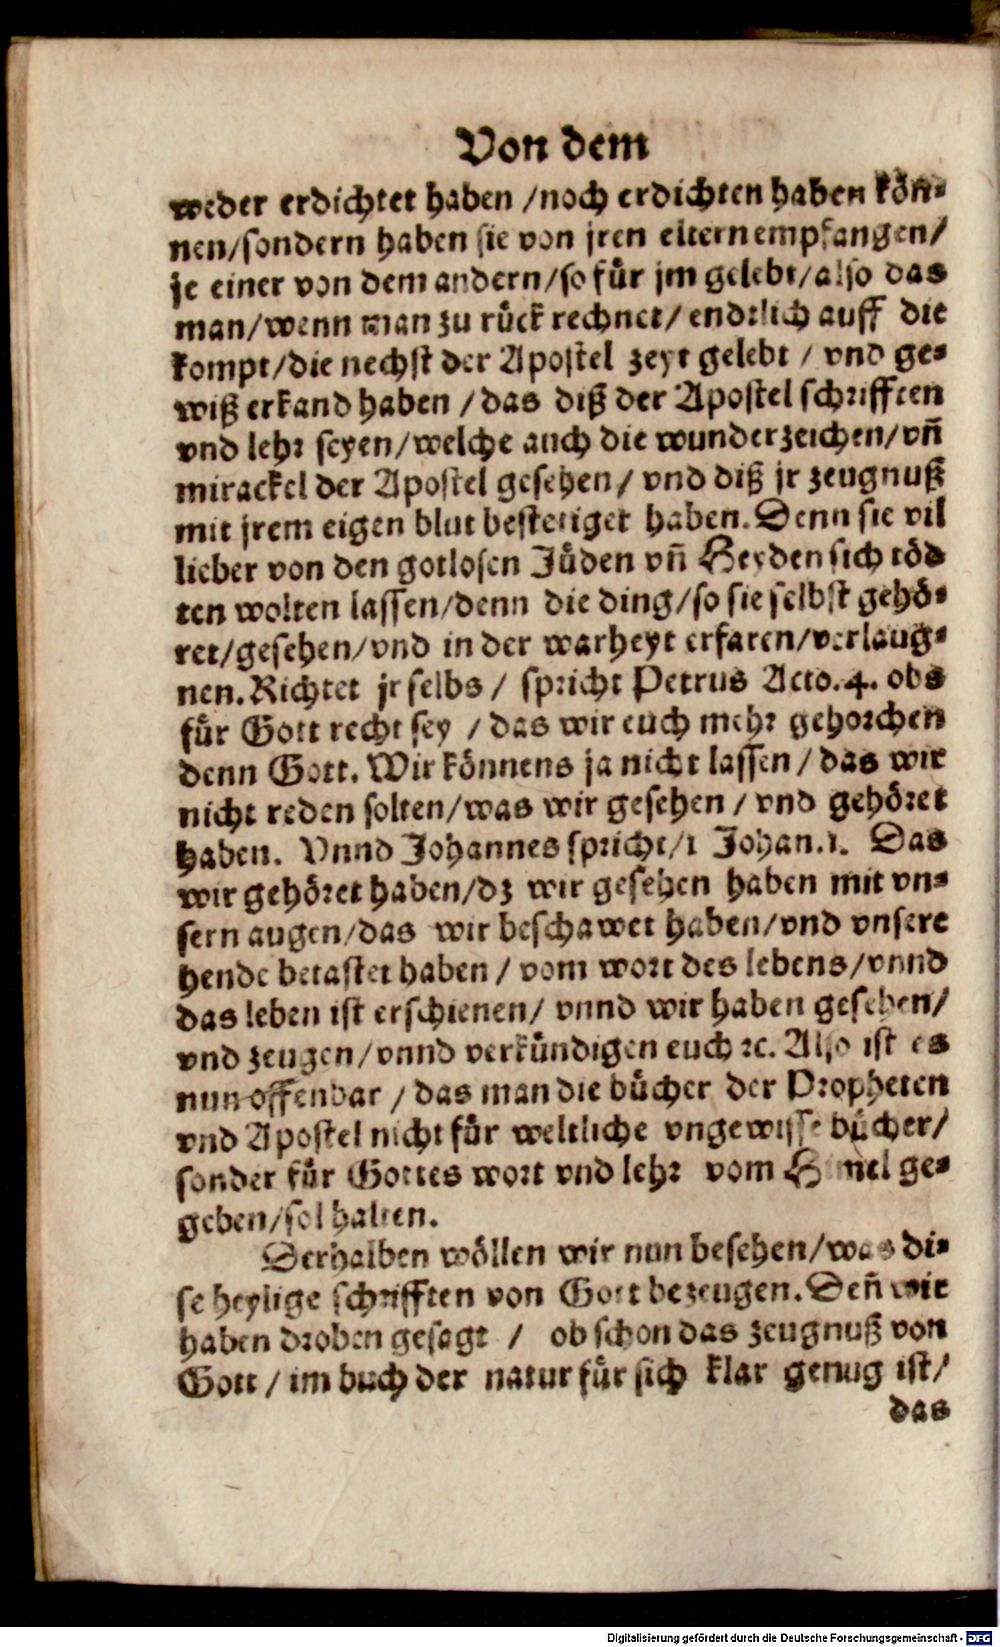 Von dem
weder erdichtet haben /noch erdichten haben kön-
nen/sondern haben sie von jren eltern empfangen/
je einer von dem andern/so für jm gelebt/also das
man/wenn man zu rück rechnet/ endtlich auff die
kompt/die nechst der Apostel zeyt gelebt / vnd ge-
wiß erkand haben /das diß der Apostel schrifften
vnd lehr seyen/welche auch die wunderzeichen/vñ
mirackel der Apostel gesehen/ vnd diß jr zeugnuß
mit jrem eigen blut bestetiget haben. Denn sie vil
lieber von den gotlosen Jüden vñ Heyden sich töd
ten wolten lassen/denn die ding/so sie selbst gehö-
ret/gesehen/vnd in der warheyt erfaren/verlaug-
nen. Richtet jr selbs / spricht Petrus Acto.4. obs
für Gott recht sey /das wir euch mehr gehorchen
denn Gott. Wir könnens ja nicht lassen /das wir
nicht reden solten/was wir gesehen / vnd gehöret
haben. Vnnd Johannes spricht/1 Johan.1. Das
wir gehöret haben/dz wir gesehen haben mit vn-
sern augen/das wir beschawet haben/vnd vnsere
hende betastet haben / vom wort des lebens/vnnd
das leben ist erschienen/ vnnd wir haben gesehen/
vnd zeugen/vnnd verkündigen euch ꝛc. Also ist es
nun offenbar /das man die bücher der Propheten
vnd Apostel nicht für weltliche vngewisse bücher/
sonder für Gottes wort vnd lehr vom Himel ge-
geben/sol halten.
Derhalben wöllen wir nun besehen/was di-
se heylige schrifften von Gott bezeugen. Deñ wir
haben droben gesagt / ob schon das zeugnuß von
Gott / im buch der natur für sich klar genug ist/
das
Digitalisierung gefördert durch die Deutsche Forschungsgemeinschaft - DFG